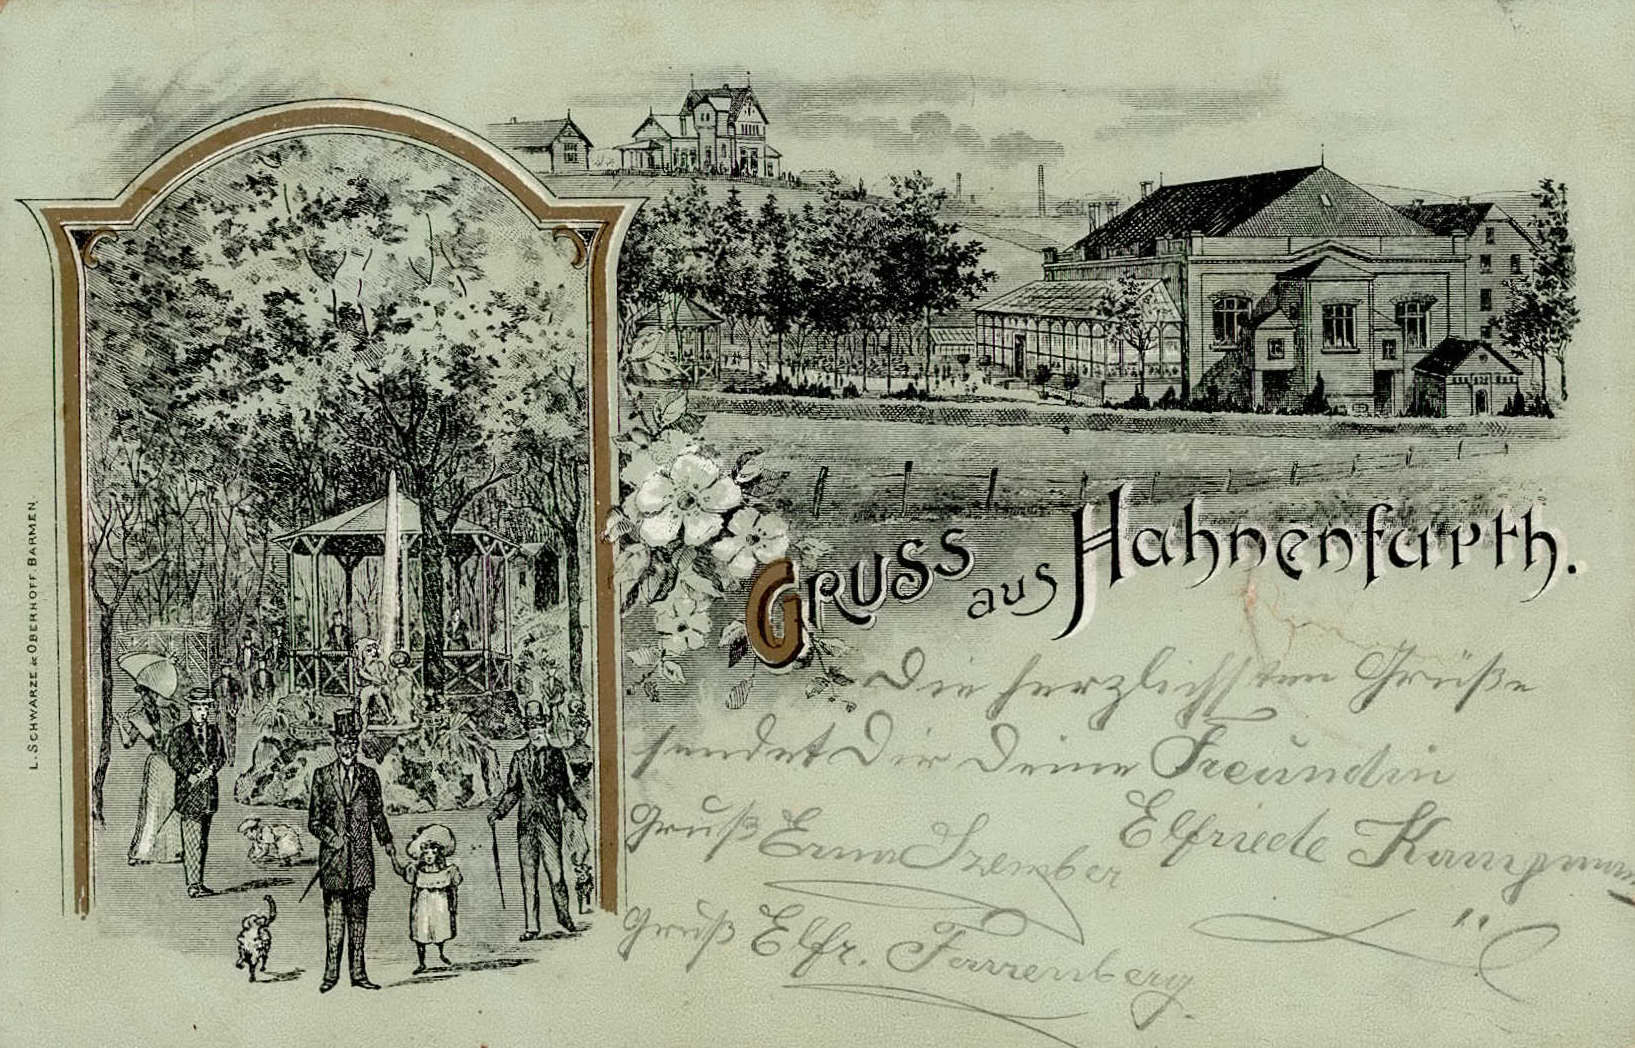 L. SCHWARZE & OBERHOFF BARMEN
GRUSS aus Hahnenfurth.
Die herzlichsten Grüße
sendet Dir Deine Freundin
Elfriede Kampmann
Gruß Erna
Gruß Elfr. Farrenberg.